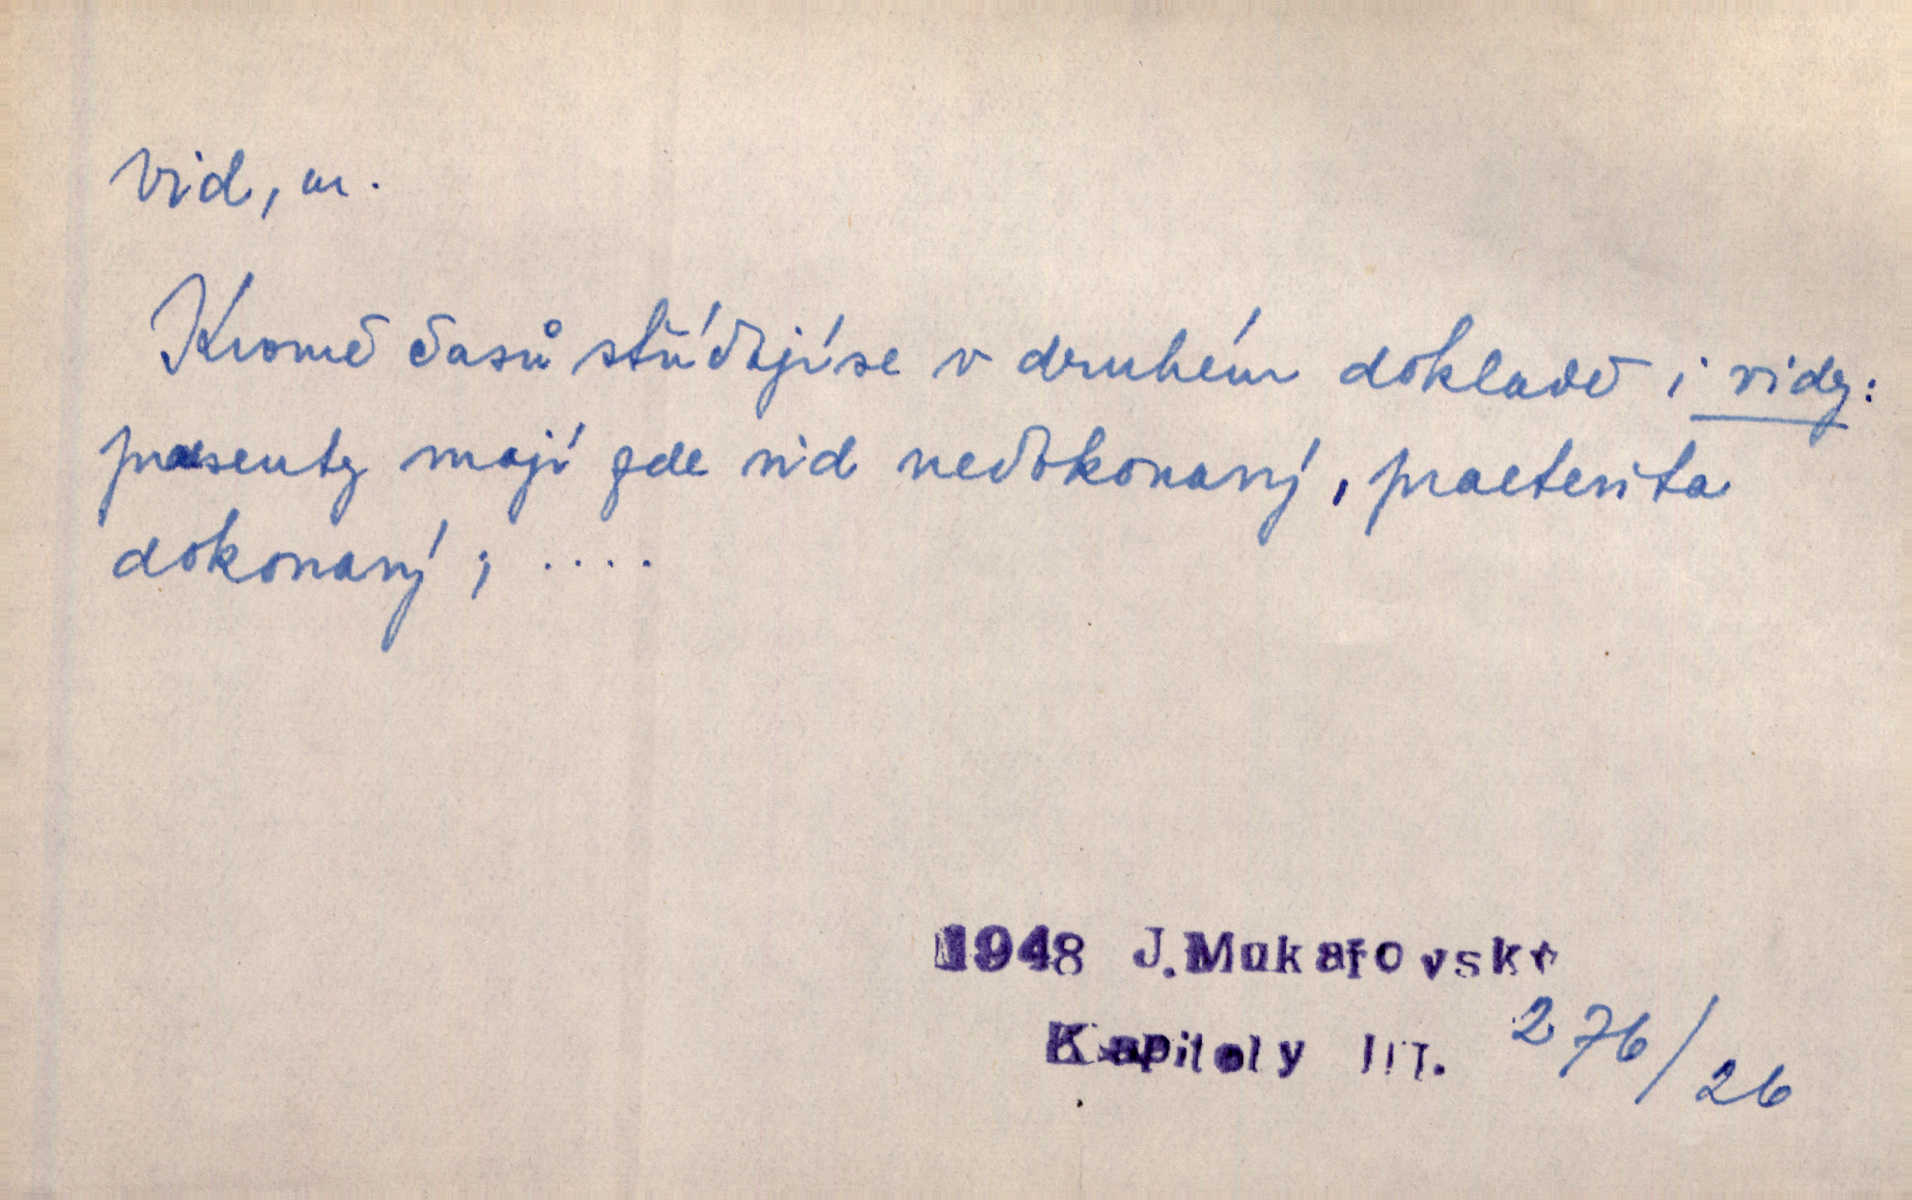 vid, m.
Kromě časů střídají se v druhém dokladě i vidy:
praesenty mají zde vid nedokonavý, praeterita
dokonavý; ....
1948 J. Mukařovský
Kapitoly III. 276/26